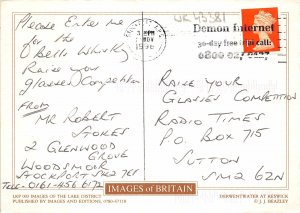 UK 45381
Demon Internet
30-day free trial call:
1996
Please Enter me
for the
O'Bells Whisky
Raise your
glasses/Competition
From
MR ROBERT
STOKES
2 GLENWOOD
GROVE
WOODSMOOR
STOCKPORT SK2 7
TELE - 0161-456 67
RAISE YOUR
GLASSES COMPETITION
RADIO TIMES
P O BOX 715
SUTTON
SM2 6ZN
IMAGES of BRITAIN
LKP 083 IMAGES OF THE LAKE DISTRICT
PUBLISHED BY IMAGES AND EDITIONS, 0780-57118
DERWENTWATER AT KESWICK
© J. J. BEAZLEY